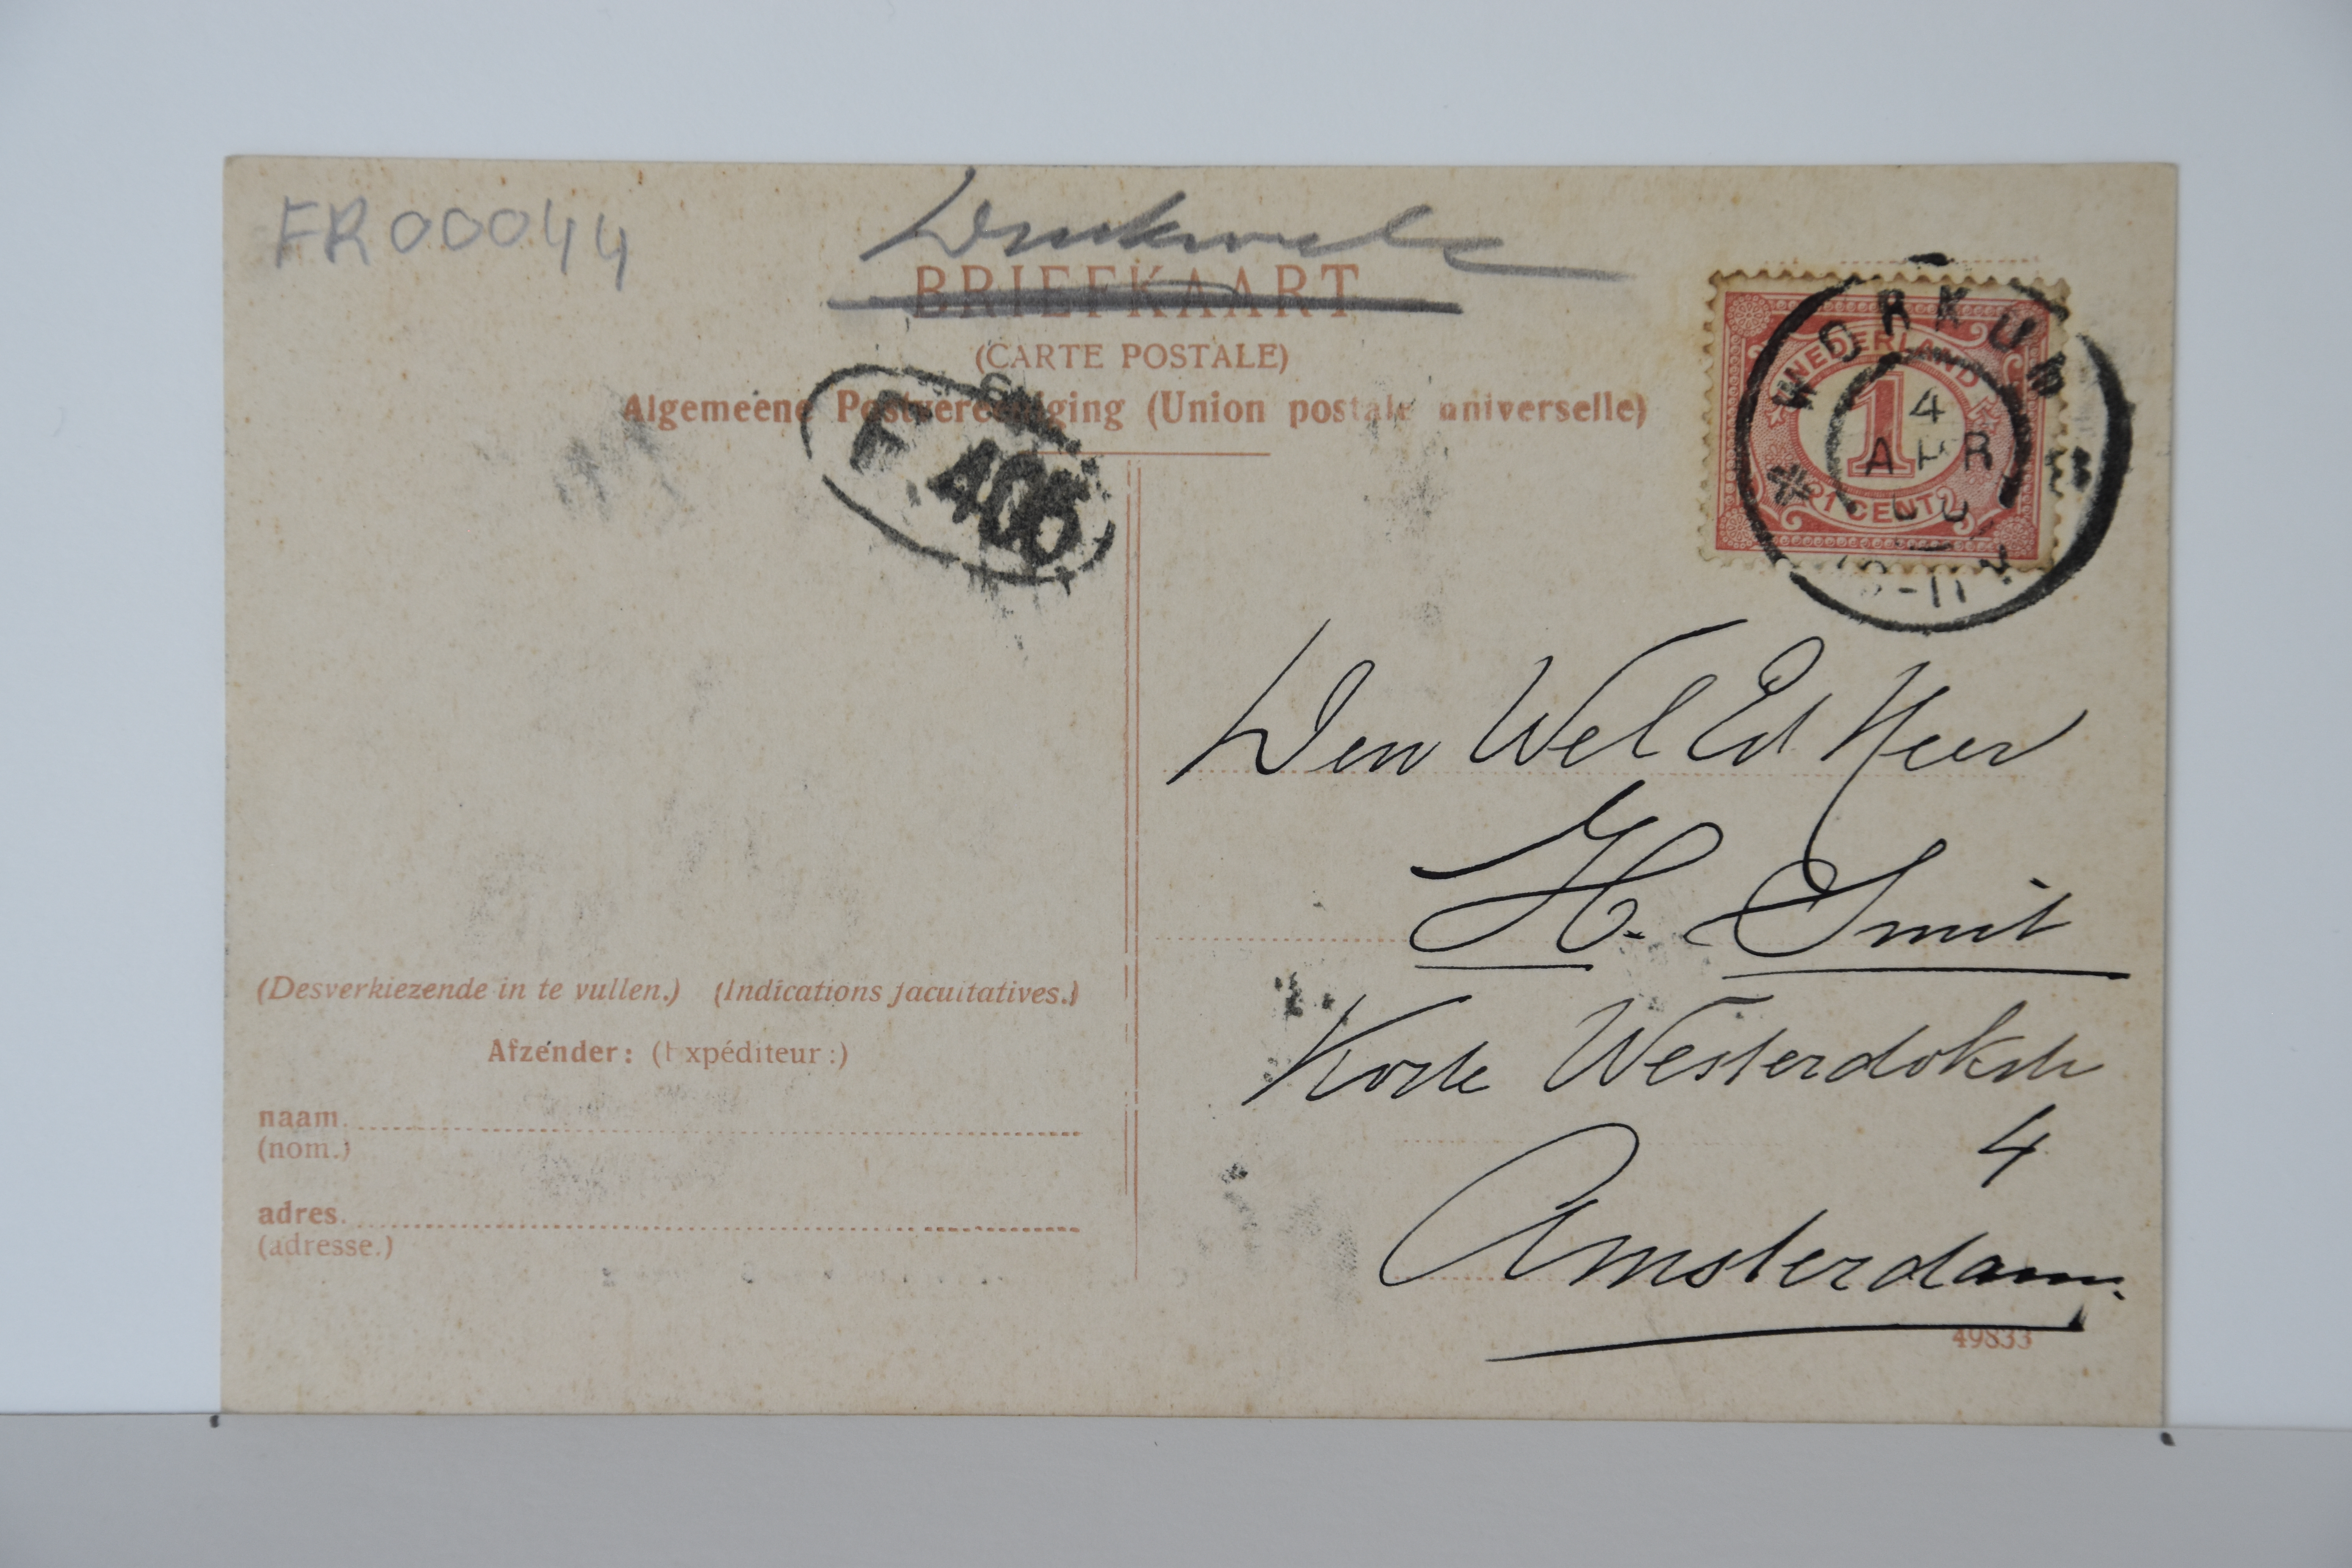 FR00044
Drukwerk
BRIEFKAART
(CARTE POSTALE)
Algemeene Postvereeniging (Union postale universelle)
F 406
WORKUM
NEDERLAND
4
APR
1
1 CENT
Den Wel Ed Heer
H. Smit
Korte Westerdokstr
4
Amsterdam.
(Desverkiezende in te vullen.) (Indications facultatives.)
Afzender: (Expéditeur:)
naam
(nom.)
adres.
(adresse.)
49833